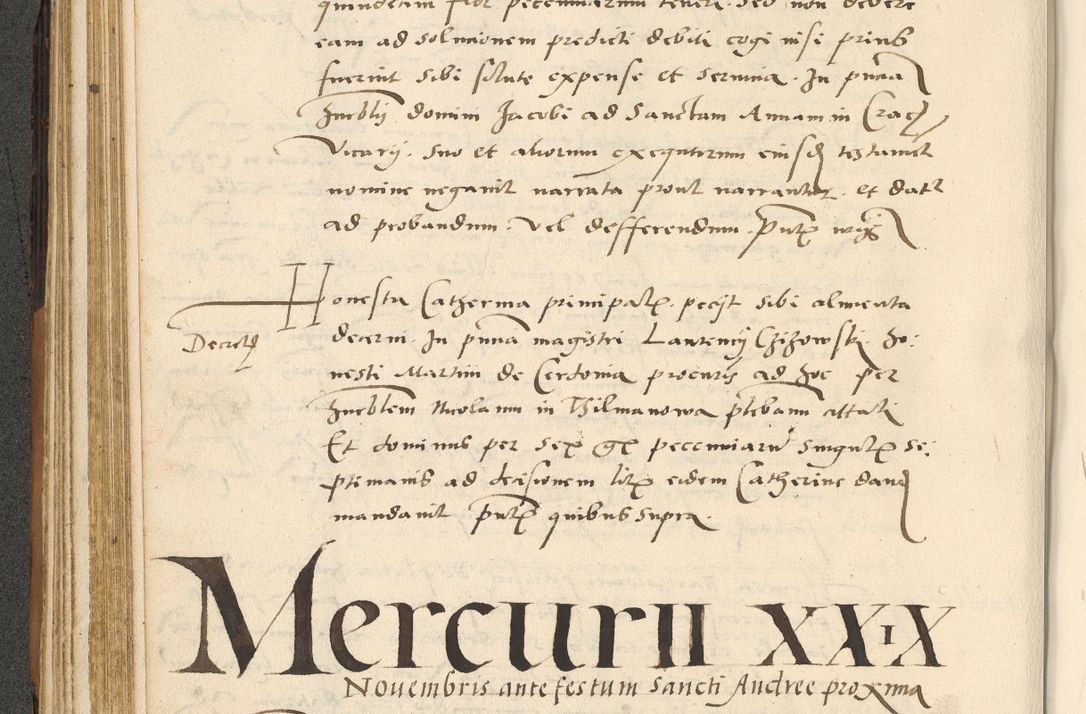 quindecim flor pecuniarum teneri. sed non debere
eam ad solucionem predicti debiti cogi nisi prius
fuerint sibi solute expense et servicia. In pnua
hureblij domini Jacobi ad Sanctam Annam in Crac
Vicarij. suo et aliorum exequtorum eiusd testament
nomine negavit narrata prout narrantur. et datt
ad probandum. vel defferendum. Pntx
Honesta Catherina principalx. pecijt sibi alimenta
Decretu
decerni. In pnua magistri Laurencij Chizowski ho:
nesti Martini de Cerdonia procuris ad hoc per
hureblem Nicolaum in Thilmanowa plebanu
Et dominus per sex gx pecuniaru singulx se:
ptimanis ad decisionem litx eidem Catherine dand
mandavit Pntx quibus supra.
Mercurii XXIX
Novembris ante festum Sancti Andree proxima